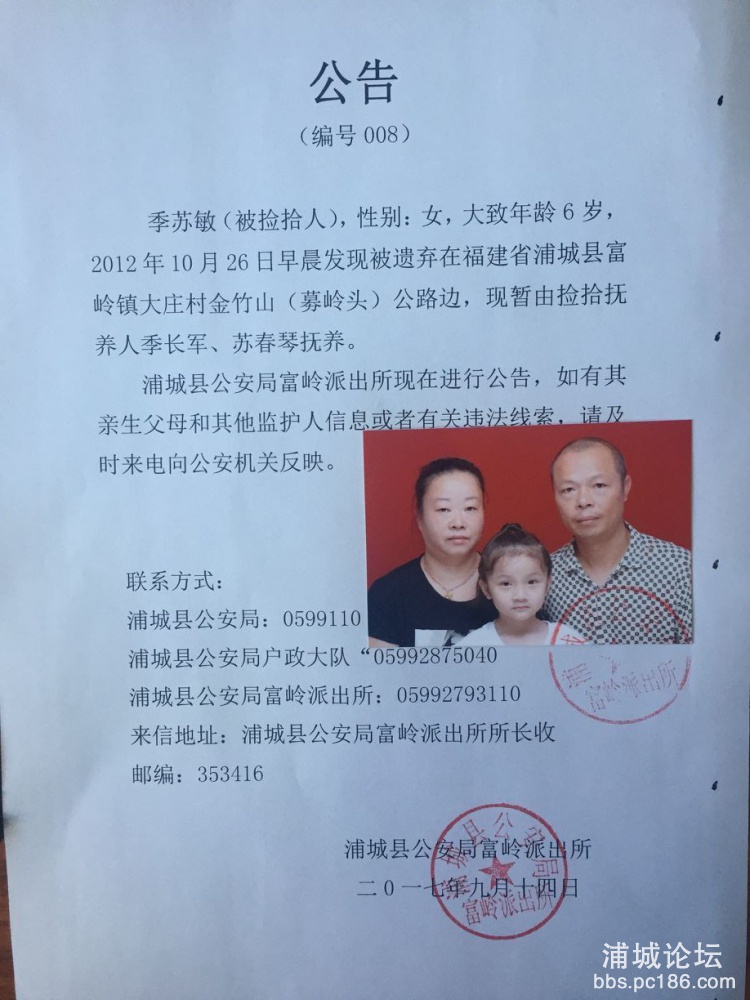 公告
（编号 008）
季苏敏（被捡拾人），性别：女，大致年龄 6 岁，
2012 年 10 月 26 日早晨发现被遗弃在福建省浦城县富
岭镇大庄村金竹山（募岭头）公路边，现暂由捡拾抚
养人季长军、苏春琴抚养。
浦城县公安局富岭派出所现在进行公告，如有其
亲生父母和其他监护人信息或者有关违法线索，请及
时来电向公安机关反映。
联系方式：
浦城县公安局：0599110
浦城县公安局户政大队“05992875040
浦城县公安局富岭派出所：05992793110
来信地址：浦城县公安局富岭派出所所长收
邮编：353416
富岭派出所
浦城县公安局富岭派出所
二0一七年九月十四日
浦城县公安局
富岭派出所
浦城论坛
bbs.pc186.com